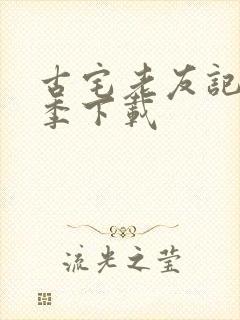 古宅老友記
季下載
流光之莹